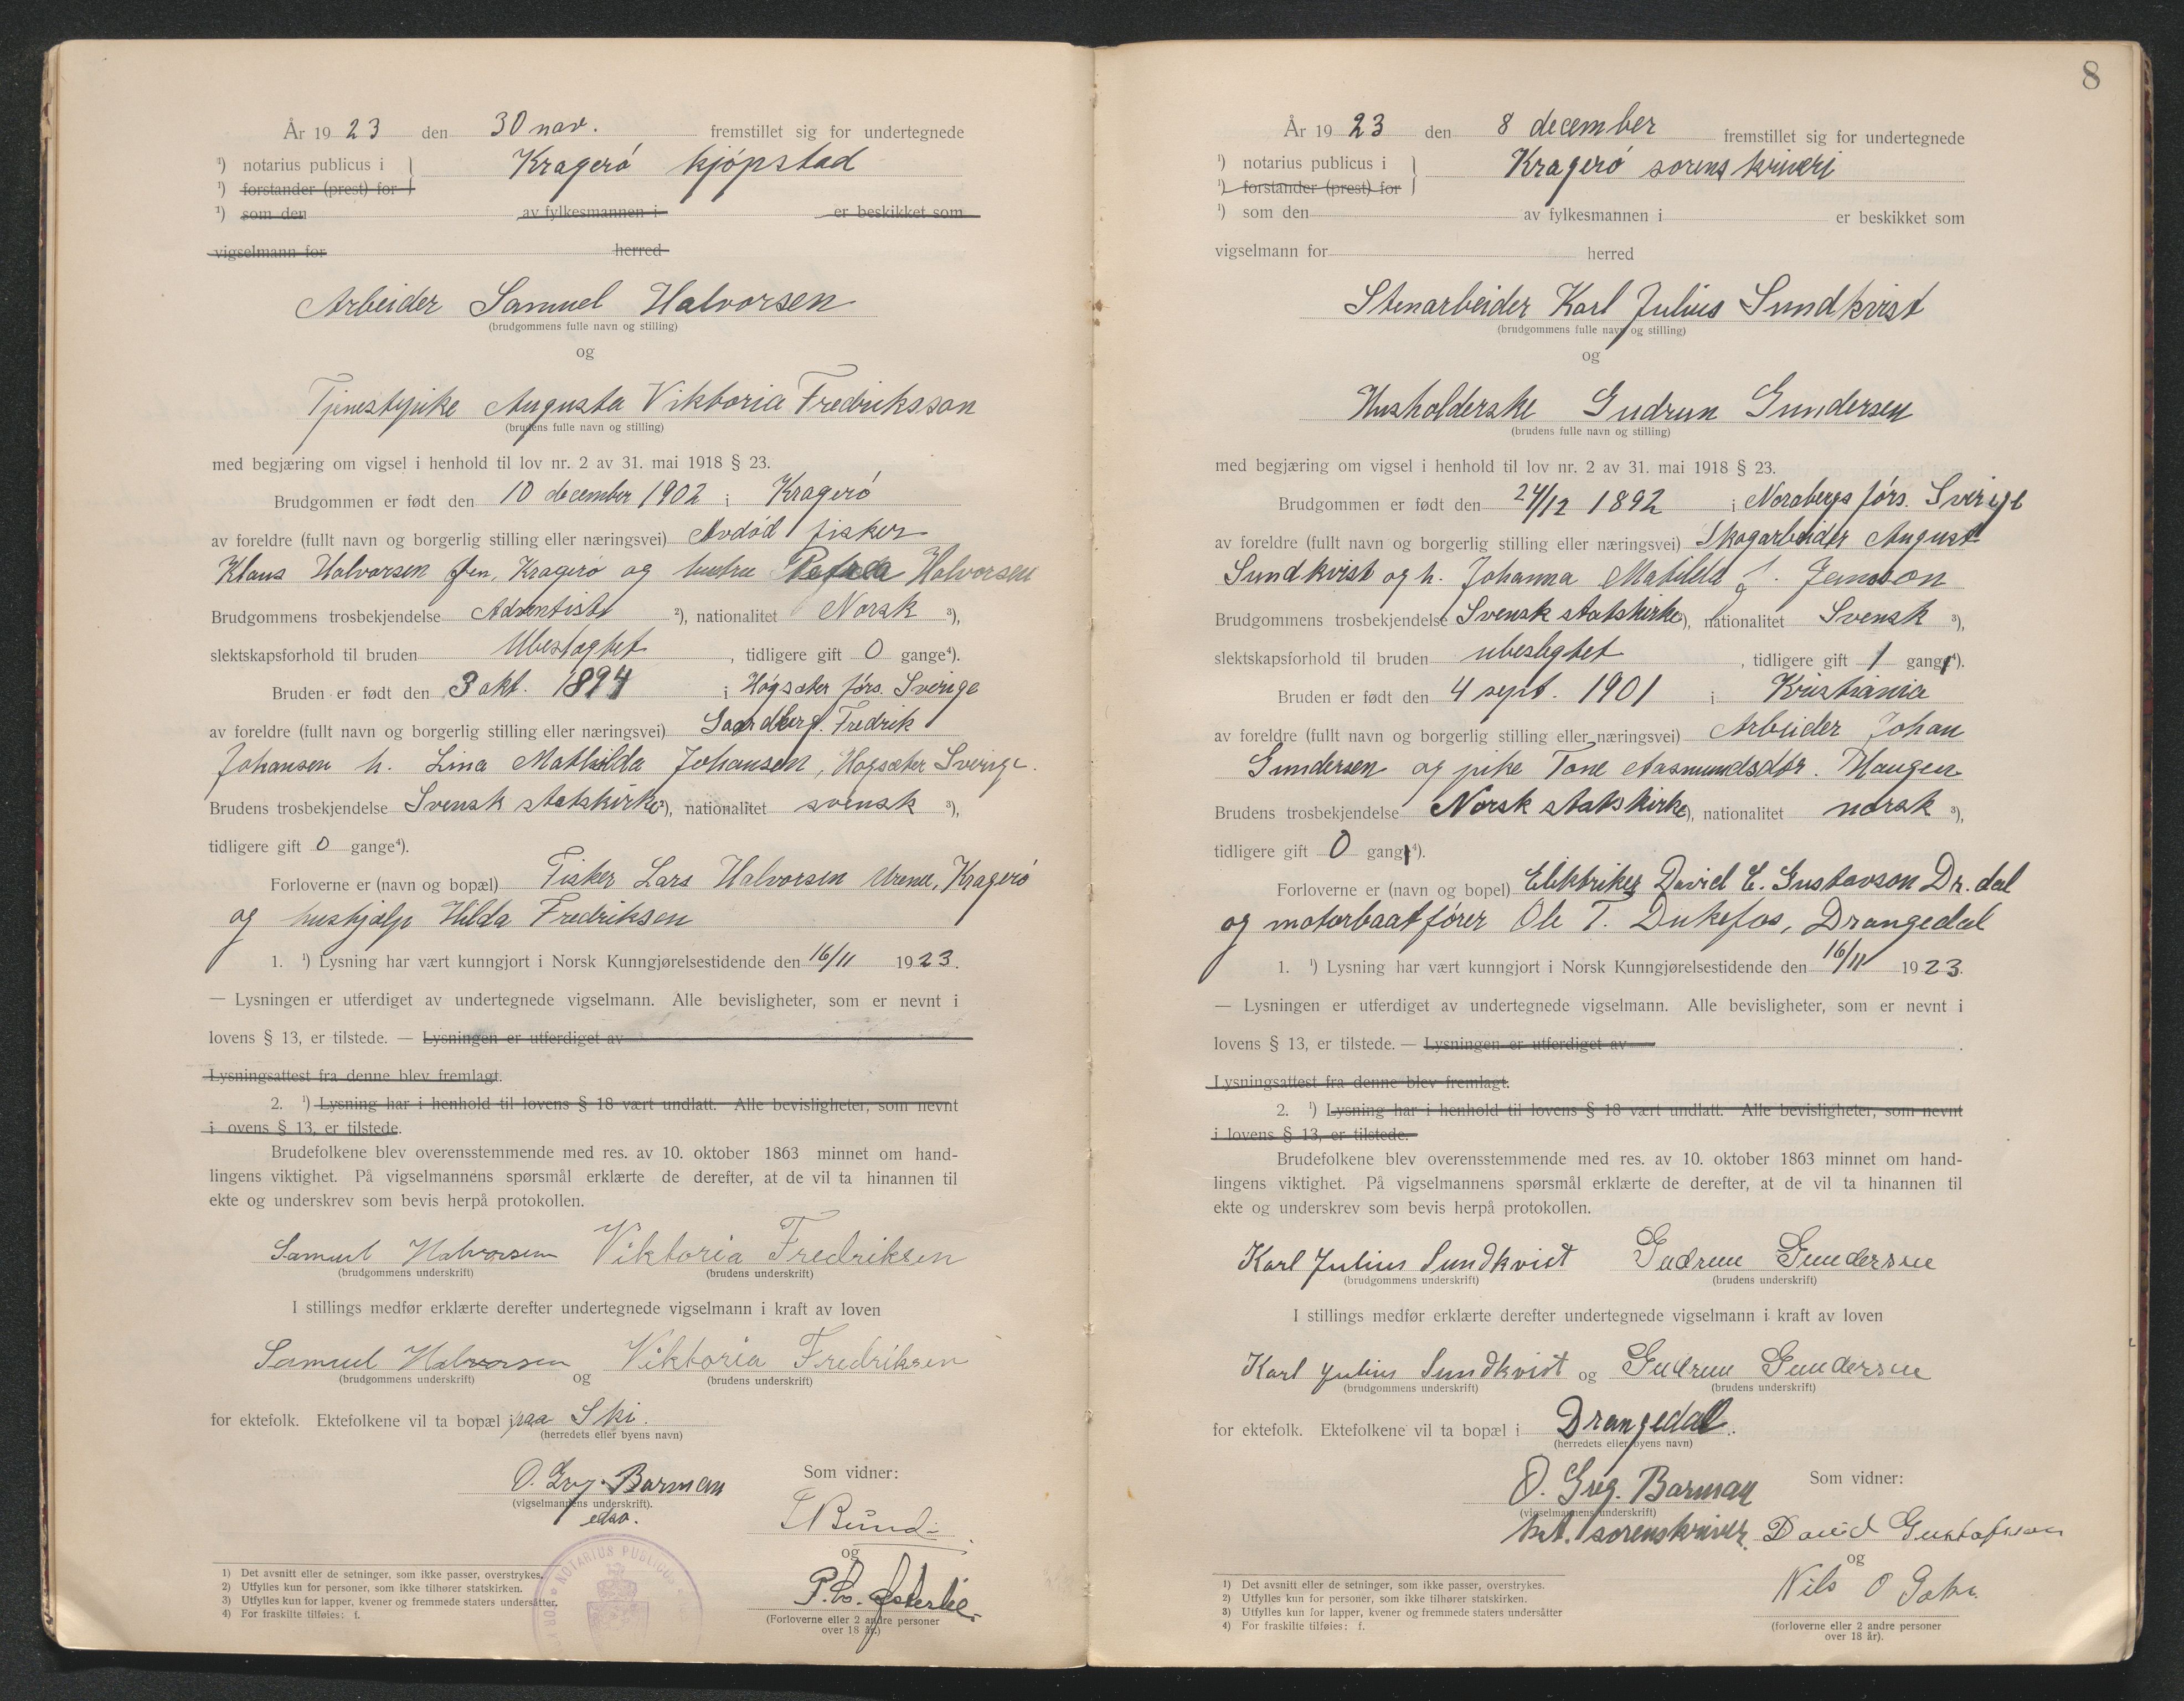 År 19 23 den 30 nov. fremstillet sig for undertegnede
¹) notarius publicus i } Kragerö kjöpstad
¹) forstander (prest) for
¹) som den av fylkesmannen i er beskikket som
vigselmann for herred
Arbeider Samuel Halvorsen
(brudgommens fulle navn og stilling)
og
Tjenestepike Augusta Viktoria Fredriksson
(brudens fulle navn og stilling)
med begjæring om vigsel i henhold til lov nr. 2 av 31. mai 1918 § 23.
Brudgommen er født den 10 december 1902 i Kragerö
av foreldre (fullt navn og borgerlig stilling eller næringsvei) Avdöd fisker
Klaus Halvorsen Øen, Kragerö og hustru Halvorsen
Brudgommens trosbekjendelse Adventist ²), nationalitet Norsk ³),
slektskapsforhold til bruden Ubeslægtet, tidligere gift 0 gange⁴).
Bruden er født den 3 okt. 1894 i Högsæter förs. Sverige
av foreldre (fullt navn og borgerlig stilling eller næringsvei) Gaardbrg. Fredrik
Johansen h. Lina Mathilda Johansen, Högsæter Sverige.
Brudens trosbekjendelse Svensk statskirke ²), nationalitet svensk ³),
tidligere gift 0 gange⁴).
Forloverne er (navn og bopæl) Fisker Lars Halvorsen Kragerö
og hushjælp Hilda Fredriksen
1. ¹) Lysning har vært kunngjort i Norsk Kunngjørelsestidende den 16/11 1923.
— Lysningen er utferdiget av undertegnede vigselmann. Alle bevisligheter, som er nevnt i
lovens § 13, er tilstede. — Lysningen er utferdiget av
Lysningsattest fra denne blev fremlagt.
2. ¹) Lysning har i henhold til lovens § 18 vært undlatt. Alle bevisligheter, som nevnt
i ovens § 13, er tilstede.
Brudefolkene blev overensstemmende med res. av 10. oktober 1863 minnet om hand-
lingens viktighet. På vigselmannens spørsmål erklærte de derefter, at de vil ta hinannen til
ekte og underskrev som bevis herpå protokollen.
Samuel Halvorsen Viktoria Fredriksen
(brudgommens underskrift) (brudens underskrift)
I stillings medfør erklærte derefter undertegnede vigselmann i kraft av loven
Samuel Halvorsen og Viktoria Fredriksen
(brudgommens underskrift) (brudens underskrift)
for ektefolk. Ektefolkene vil ta bopæl i paa Ski.
(herredets eller byens navn)
O. Greg. Barman Som vidner:
(vigselmannens underskrift).
edsv.
og
(Forloverne eller 2 andre personer
over 18 år.)
NOTARIUS PUBLICUS
1) Det avsnitt eller de setninger, som ikke passer, overstrykes.
2) Utfylles kun for personer, som ikke tilhører statskirken.
3) Utfylles kun for lapper, kvener og fremmede staters undersåtter.
4) For fraskilte tilføies: f.
8
År 19 23 den 8 december fremstillet sig for undertegnede
¹) notarius publicus i } Kragerö sorenskriveri
¹) forstander (prest) for
¹) som den av fylkesmannen i er beskikket som
vigselmann for herred
Stenarbeider Karl Julius Sundkvist
(brudgommens fulle navn og stilling)
og
Husholderske Gudrun Gundersen
(brudens fulle navn og stilling)
med begjæring om vigsel i henhold til lov nr. 2 av 31. mai 1918 § 23.
Brudgommen er født den 24/12 1892 i Norabergs förs. Sverige
av foreldre (fullt navn og borgerlig stilling eller næringsvei) Skogarbeider August
Sundkvist og h. Johanna Matilda f. Jansson
Brudgommens trosbekjendelse Svensk statskirke ²), nationalitet Svensk ³),
slektskapsforhold til bruden ubeslegtet, tidligere gift 1 gang⁴).
Bruden er født den 4 sept. 1901 i Kristiania
av foreldre (fullt navn og borgerlig stilling eller næringsvei) Arbeider Johan
Gundersen og pike Tone Aasmundsdtr. Haugen
Brudens trosbekjendelse Norsk statskirke ²), nationalitet norsk ³),
tidligere gift 0 gang⁴).
Forloverne er (navn og bopel) Elektriker David E. Gustavson Dr.dal
og motorbaatförer Ole T. Dukefos, Drangedal
1. ¹) Lysning har vært kunngjort i Norsk Kunngjørelsestidende den 16/11 1923.
— Lysningen er utferdiget av undertegnede vigselmann. Alle bevisligheter, som er nevnt i
lovens § 13, er tilstede. — Lysningen er utferdiget av
Lysningsattest fra denne blev fremlagt.
2. ¹) Lysning har i henhold til lovens § 18 vært undlatt. Alle bevisligheter, som nevnt
i lovens § 13, er tilstede.
Brudefolkene blev overensstemmende med res. av 10. oktober 1863 minnet om hand-
lingens viktighet. På vigselmannens spørsmål erklærte de derefter, at de vil ta hinannen til
ekte og underskrev som bevis herpå protokollen.
Karl Julius Sundkvist Gudrun Gundersen
(brudgommens underskrift) (brudens underskrift)
I stillings medfør erklærte derefter undertegnede vigselmann i kraft av loven
Karl Julius Sundkvist og Gudrun Gundersen
(brudgommens underskrift) (brudens underskrift)
for ektefolk. Ektefolkene vil ta bopæl i Drangedal.
(herredets eller byens navn)
O. Greg. Barman Som vidner:
(vigselmannens underskrift)
kst. sorenskriver. David Gustafsson
og
Nils O
(forloverne eller 2 andre personer
over 18 år).
1) Det avsnitt eller de setninger, som ikke passer, overstrykes.
2) Utfylles kun for personer, som ikke tilhører statskirken.
3) Utfylles kun for lapper, kvener og fremmede staters undersåtter
4) For fraskilte tilføies: f.